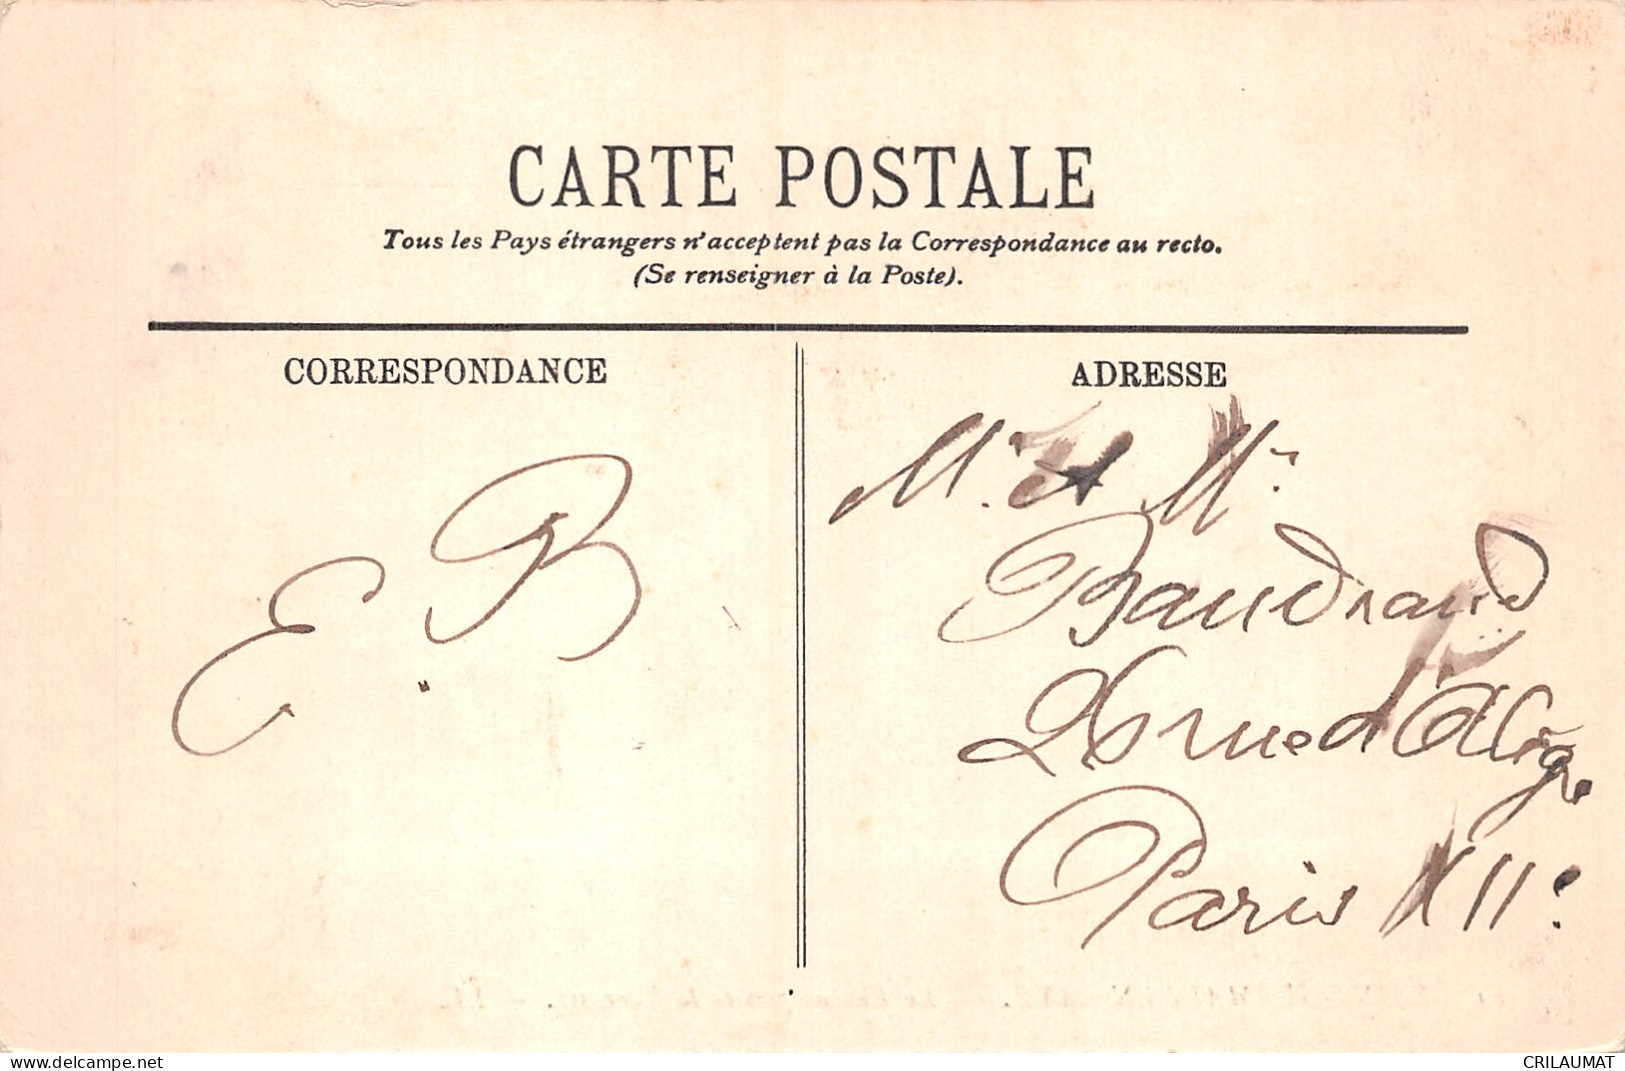 CARTE POSTALE
Tous les Pays étrangers n'acceptent pas la Correspondance au recto.
(Se renseigner à la Poste).
CORRESPONDANCE
ADRESSE
E. B
Mr. et Mme
Baudrand
26 rue d'Aligre
Paris XIIe
www.delcampe.net
CRILAUMAT